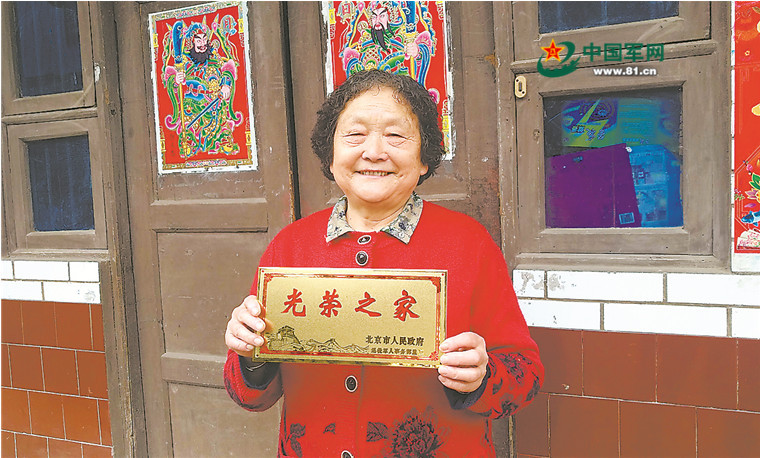 中国军网
www.81.cn
光荣之家
北京市人民政府
退役军人事务部监